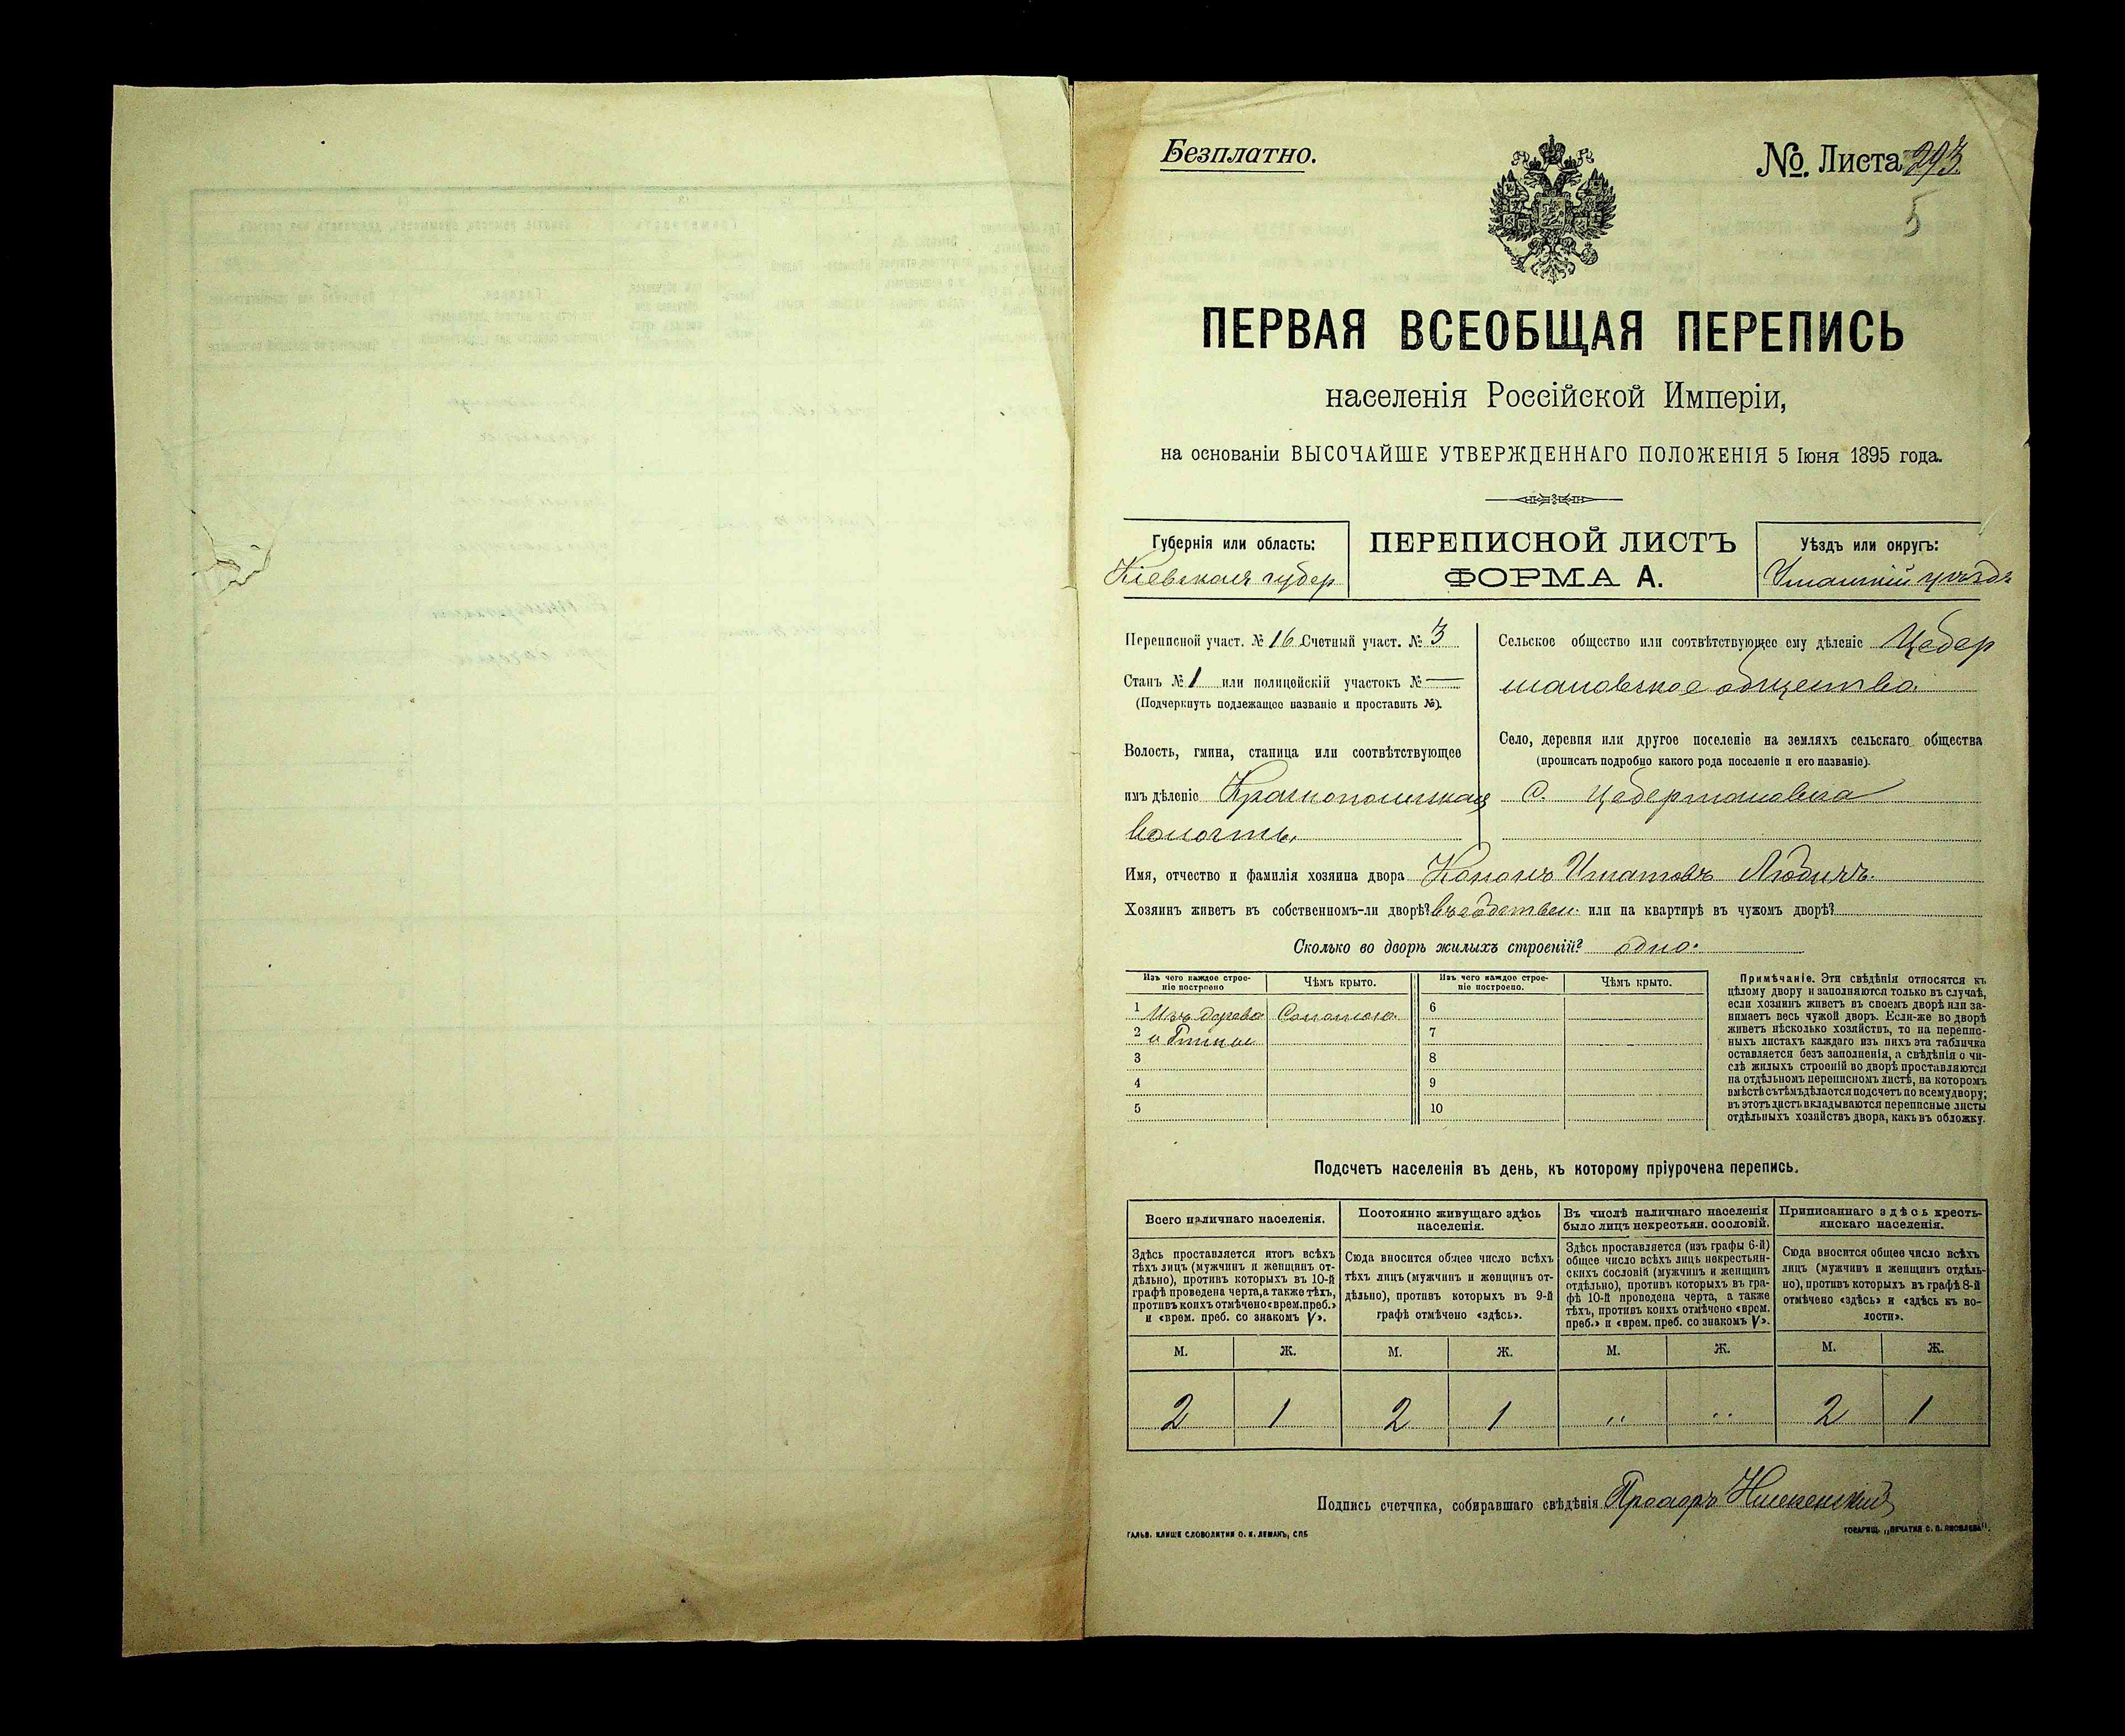 Безплатно.
№. Листа 293.
5
ПЕРВАЯ ВСЕОБЩАЯ ПЕРЕПИСЬ
населенія Россійской Имперіи,
на основаніи ВЫСОЧАЙШЕ УТВЕРЖДЕННАГО ПОЛОЖЕНІЯ 5 Іюня 1895 года.
Губернія или область:
Кіевская губер
ПЕРЕПИСНОЙ ЛИСТЪ
ФОРМА А.
Уѣздъ или округъ:
Уманскій уѣздъ
Переписной участ. № 16 Счетный участ. № 3
Станъ № 1 или полицейскій участокъ № —
(Подчеркнуть подлежащее названіе и проставить №).
Волость, гмина, станица или соотвѣтствующее
имъ дѣленіе Краснопольская
волость,
Сельское общество или соотвѣтствующее ему дѣленіе Цебер
мановское общество.
Село, деревня или другое поселеніе на земляхъ сельскаго общества
(прописать подробно какого рода поселеніе и его названіе).
с. Цебермановка
Имя, отчество и фамилія хозяина двора Кононъ Игнатовъ
Хозяинъ живетъ въ собственномъ-ли дворѣ? въ собствен. или на квартирѣ въ чужомъ дворѣ?
Сколько во дворѣ жилыхъ строеній? одно.
Изъ чего каждое строе-
ніе построено
Чѣмъ крыто.
Изъ чего каждое строе-
ніе построено.
Чѣмъ крыто.
1 Изъ дерева Соломою. 6
2 и Глины 7
3 8
4 9
5 10
Примѣчаніе. Эти свѣдѣнія относятся къ
цѣлому двору и заполняются только въ случаѣ,
если хозяинъ живетъ въ своемъ дворѣ или за-
нимаетъ весь чужой дворъ. Если-же во дворѣ
живетъ нѣсколько хозяйствъ, то на перепис-
ныхъ листахъ каждаго изъ нихъ эта табличка
оставляется безъ заполненія, а свѣдѣнія о чи-
слѣ жилыхъ строеній во дворѣ проставляются
на отдѣльномъ переписномъ листѣ, на которомъ
вмѣстѣ съ тѣмъ дѣлается подсчетъ по всему двору;
въ этотъ листъ вкладываются переписные листы
отдѣльныхъ хозяйствъ двора, какъ въ обложку.
Подсчетъ населенія въ день, къ которому пріурочена перепись.
Всего наличнаго населенія.
Здѣсь проставляется итогъ всѣхъ
тѣхъ лицъ (мужчинъ и женщинъ от-
дѣльно), противъ которыхъ въ 10-й
графѣ проведена черта, а также тѣхъ,
противъ коихъ отмѣчено «врем. преб.»
и «врем. преб. со знакомъ V».
Постоянно живущаго здѣсь
населенія.
Сюда вносится общее число всѣхъ
тѣхъ лицъ (мужчинъ и женщинъ от-
дѣльно), противъ которыхъ въ 9-й
графѣ отмѣчено «здѣсь».
Въ числѣ наличнаго населенія
было лицъ некрестьян. сословій.
Здѣсь проставляется (изъ графы 6-й)
общее число всѣхъ лицъ некрестьян-
скихъ сословій (мужчинъ и женщинъ
отдѣльно), противъ которыхъ въ гра-
фѣ 10-й проведена черта, а также
тѣхъ, противъ коихъ отмѣчено «врем.
преб.» и «врем. преб. со знакомъ V».
Приписаннаго здѣсь кресть-
янскаго населенія.
Сюда вносится общее число всѣхъ
лицъ (мужчинъ и женщинъ отдѣль-
но), противъ которыхъ въ графѣ 8-й
отмѣчено «здѣсь» и «здѣсь въ во-
лости».
М. Ж. М. Ж. М. Ж. М. Ж.
2 1 2 1 „ „ 2 1
Подпись счетчика, собиравшаго свѣдѣнія
ГАЛЬВ. КЛИШЕ СЛОВОЛИТНИ О. И. ЛЕМАНЪ, СПБ
ТОВАРИЩ. „ПЕЧАТНЯ С. П. ЯКОВЛЕВА".